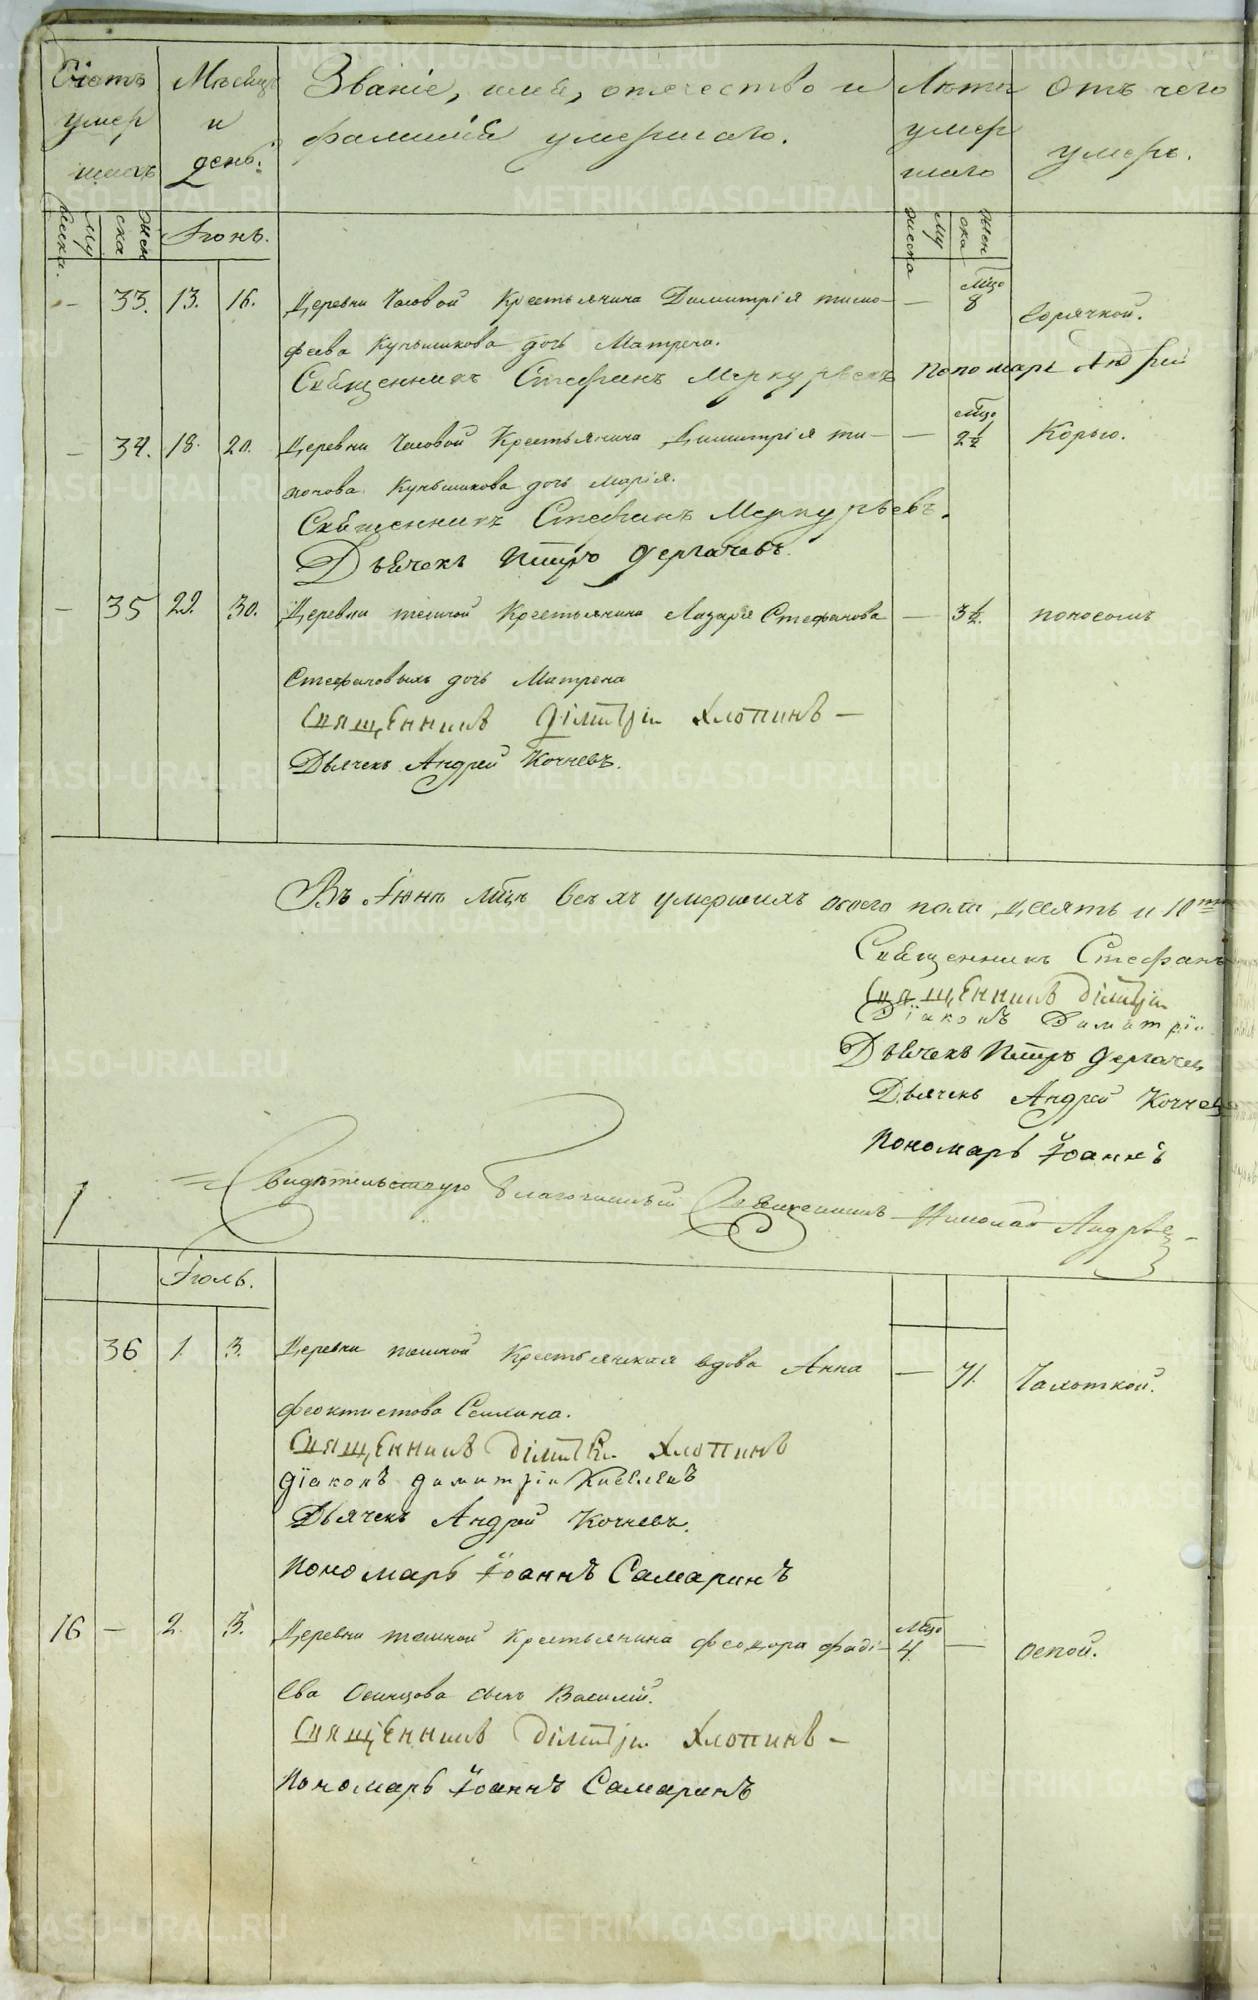 Счетъ умер шихъ
Мѣсяцъ и день.
Званіе, имя, отечество и фамилія умершаго.
Лѣта умер шаго
Отъ чего умеръ.
му жеска.
жен ска
Іюнь.
му жеска
жен ска
— 33. 13. 16. Деревни Часовой Крестьянина Димитрія тимо— — мѣцо 8 Горячкой.
феева Кунщикова дочь Матрена.
Священникъ Стефанъ Меркурьевъ Пономарь Андрей
— 34. 18. 20. Деревни Часовой Крестьянина Димитрія ти— — мѣцо 2½ Корью.
Кунщикова дочь Марія.
Священникъ Стефанъ Меркурьевъ.
Дьячекъ Петръ Дергачевъ.
— 35 29. 30. Деревни темной Крестьянина Лазаря Стефанова — 3½. поносомъ
Стефановыхъ дочь Матрена
Священникъ Дімітрій Хлопинъ —
Дьячекъ Андрей Кочневъ.
Въ Іюнѣ мцѣ всѣхъ умершихъ обоего пола десять и 10
Священникъ Стефанъ
Священникъ Дімітрій
Діаконъ Димитрій
Дьячекъ Петръ Дергачев
Дьячекъ Андрей Кочнев
Пономарь Іоаннъ
Свидѣтельствую Благочинный Священникъ Николай Андрѣе
Іюль.
36 1. 3. Деревни темной Крестьянская вдова Анна — 71. Чахоткой.
феоктистова
Священникъ Дімітрій Хлопинъ
Діаконъ Димитрій Киселевъ
Дьячекъ Андрей Кочневъ.
Пономарь Іоаннъ Самаринъ
16 — 2. 3. Деревни темной Крестьянина Феодора фаді— мѣцо 4. — оспой.
ева Осинцова сынъ Василій.
Священникъ Дімітрій Хлопинъ —
Пономарь Іоаннъ Самаринъ
METRIKI.GASO-URAL.RU